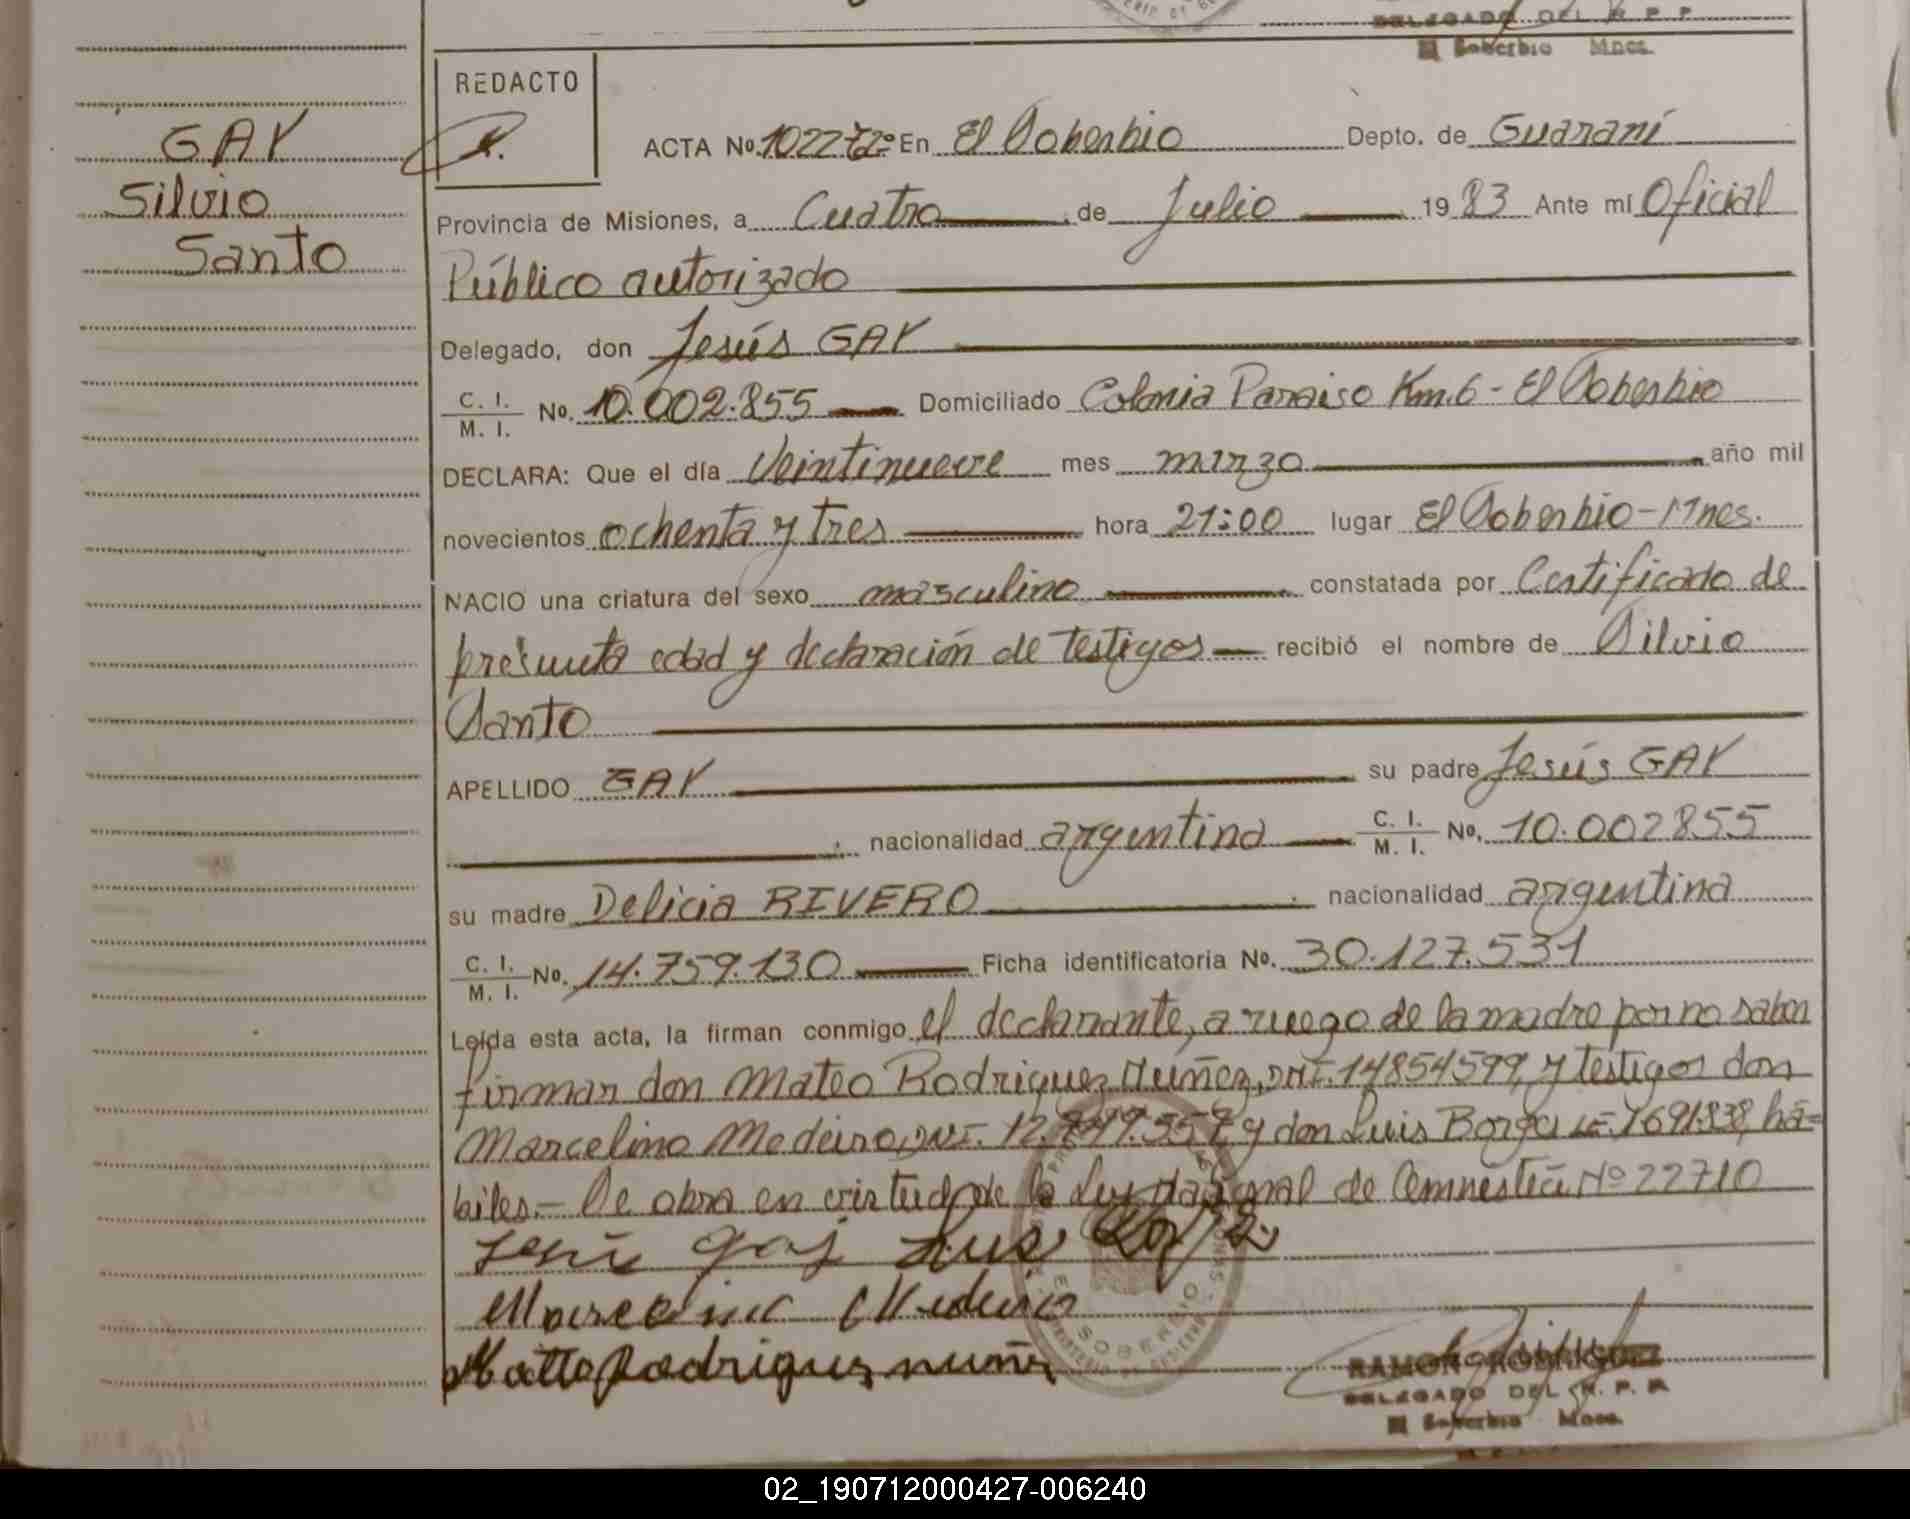 DELEGADO DEL R. P. P.
El Soberbio Mnes.
REDACTO
GAY
Silvio
Santo
ACTA No. 1022 T2º En El Soberbio Depto. de Guaraní
Provincia de Misiones, a Cuatro de Julio 1983 Ante mí Oficial
Público autorizado
Delegado, don Jesús GAY
C. I. / M. I. No. 10.002.855 Domiciliado Colonia Paraiso Km.6 - El Soberbio
DECLARA: Que el día Veintinueve mes marzo año mil
novecientos ochenta y tres hora 21:00 lugar El Soberbio - Mnes.
NACIO una criatura del sexo masculino constatada por Certificado de
presunta edad y declaración de testigos recibió el nombre de Silvio
Santo
APELLIDO GAY su padre Jesús GAY
nacionalidad argentina C. I. / M. I. No. 10.002855
su madre Delicia RIVERO nacionalidad argentina
C. I. / M. I. No. 14.759.130 Ficha identificatoria No. 30.127.531
Leída esta acta, la firman conmigo el declarante, a ruego de la madre por no saber
firmar don Mateo Rodriguez Nuñez, DNI. 14854599, y testigos don
Marcelino Medeiro, DNI. y don Luis Borga LE. 1691838, há=
biles.- De obra en virtud de la Ley Nacional de Amnestia Nº 22710
Jesus gaj Luis
Marcelino Medeiro
Matto Rodriguez nuñez
SOBERBIO
RAMON RODRIGUEZ
DELEGADO DEL R. P. P.
El Soberbio Mnes.
02_190712000427-006240